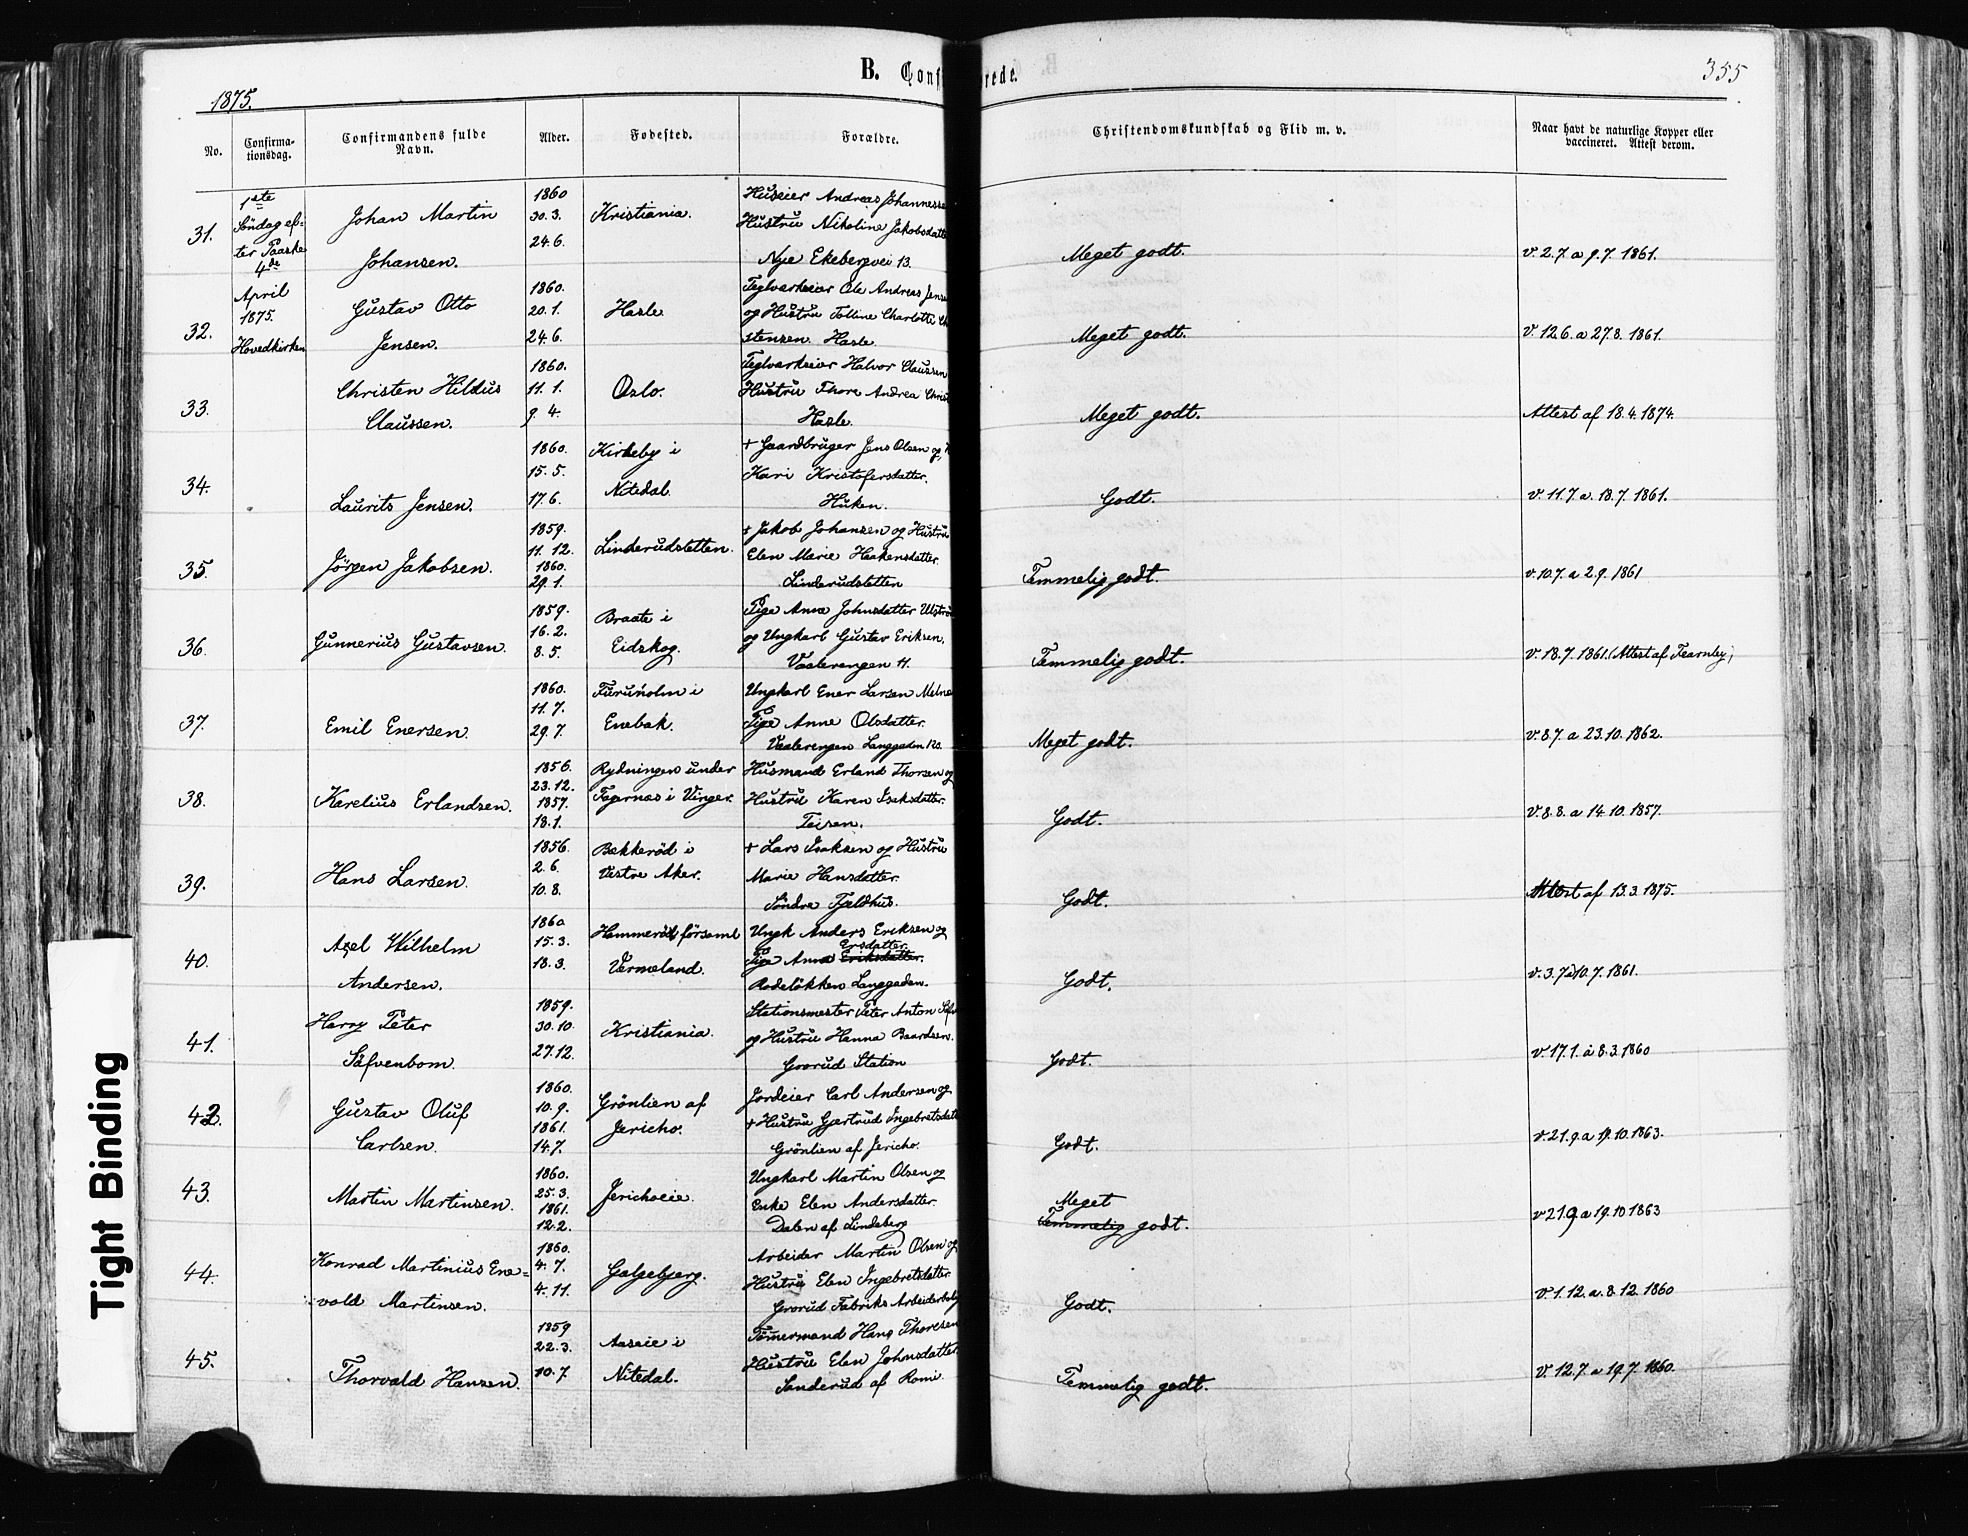 B. Conf
rede.
355
1875.
No.
Confirma-
tionsdag.
Confirmandens fulde
Navn.
Alder.
Fødested.
Forældre.
Christendomskundskab og Flid m. v.
Naar havt de naturlige Kopper eller
vaccineret. Attest derom.
1ste
Söndag ef-
ter Paaske
4de
April
1875.
Hovedkirken
31.
Johan Martin
Johansen.
1860
30. 3.
24. 6.
Kristiania.
Huseier Andreas Johannesse
Hustru Nikoline Jakobsdatte
Nye Ekebergvei 13.
Meget godt.
v. 2.7. a 9.7. 1861.
32.
Gustav Otto
Jensen.
1860.
20. 1.
24. 6.
Hasle.
Teglværkseier Ole Andreas Jense
og Hustru Tolline Charlotte Ch
stensen Hasle.
Meget godt.
v. 12.6. a 27.8. 1861.
33.
Christen Hildus
Claussen.
1860.
11. 1.
9. 4.
Oslo.
Teglværkseier Halvor Claussen
Hustru Thore Andrea Christ
Hasle.
Meget godt.
Attest af 18.4. 1874.
34.
Laurits Jensen.
1860.
15. 5.
17. 6.
Kirkeby i
Nitedal.
+ Gaardbruger Jens Olsen og
Kari Kristofersdatter.
Huken.
Godt.
v. 11.7. a. 18.7. 1861.
35.
Jörgen Jakobsen.
1859.
11. 12.
1860.
29. 1.
Linderudsletten.
+ Jakob Johansen og Hustru
Elen Marie Haakensdatter.
Linderudsletten
Temmelig godt.
v. 10.7. a 2.9. 1861
36.
Gunnerius Gustavsen.
1859.
16. 2.
8. 5.
Braate i
Eidskog.
Pige Anne Johnsdatter
og Ungkarl Gustav Eriksen.
Vaalerengen 11.
Temmelig godt.
v. 18.7. 1861. (Attest af Fearnley)
37.
Emil Enersen.
1860.
11. 7.
29. 7.
Furuholm i
Enebak.
Ungkarl Ener Larsen
Pige Anne Olsdatter.
Vaalerengen Langgaden 120.
Meget godt.
v. 8.7. a 23.10. 1862.
38.
Karelius Erlandsen.
1856.
23. 12.
1857.
18. 1.
Rydningen under
Fagernæs i Vinger.
Husmand Erland Thorsen og
Hustru Karen Isaksdatter.
Teisen.
Godt.
v. 8.8. a 14.10. 1857.
39.
Hans Larsen.
1856.
2. 6.
10. 8.
Bekkeröd i
Vestre Aker.
+ Lars Isaksen og Hustru
Marie Hansdatter.
Söndre Fjeldhus.
Godt.
Attest af 13.3. 1875.
40.
Axel Wilhelm
Andersen.
1860
15. 3.
18. 3.
Hammeröd församl
Vermeland.
Ungk Anders Eriksen og
Ersdatter
Pige Anna Eriksdatter.
Rodelökken Langgaden.
Godt.
v. 3.7. a 10.7. 1861.
41.
Harry Peter
Säfvenbom.
1859.
30. 10.
27. 12.
Kristiania.
Stationsmester Peter Anton Säfv
og Hustru Hanna Baardsen.
Grorud Station
Godt.
v. 17.1. a 8.3. 1860
42.
Gustav Oluf
Carlsen.
1860.
10. 9.
1861.
14. 7.
Grönlien af
Jericho.
Jordeier Carl Andersen og
+ Hustru Gjertrud Ingebretsdatt
Grönlien af Jericho.
Godt.
v. 21.9. a 19.10. 1863.
43.
Martin Martinsen.
1860.
25. 3.
1861.
12. 2.
Jerichoeie.
Ungkarl Martin Olsen og
Enke Elen Andersdatter.
Dalen af Lindeberg
Meget
Temmelig godt.
v 21.9 a 19.10 1863
44.
Konrad Martinius Ene-
vold Martinsen.
1860.
4. 7.
4. 11.
Galgebjerg.
Arbeider Martin Olsen og
Hustru Elen Ingebretsdatter
Grorud Fabriks Arbeiderbolig
Godt.
v. 1.12. a. 8.12. 1860
45.
Thorvald Hansen.
1859
22. 3.
10. 7.
Aaseie i
Nitedal.
Tömermand Hans Thoresen
Hustru Elen Johnsdatter
Sanderud af Romi
Temmelig godt.
v. 12.7. a 19.7. 1860.
Tight Binding